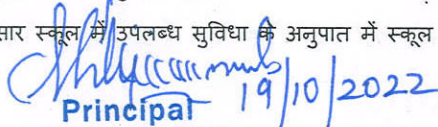 सार स्कूल में उपलब्ध सुविधा के अनुपात में स्कूल
19/10/2022
Principal